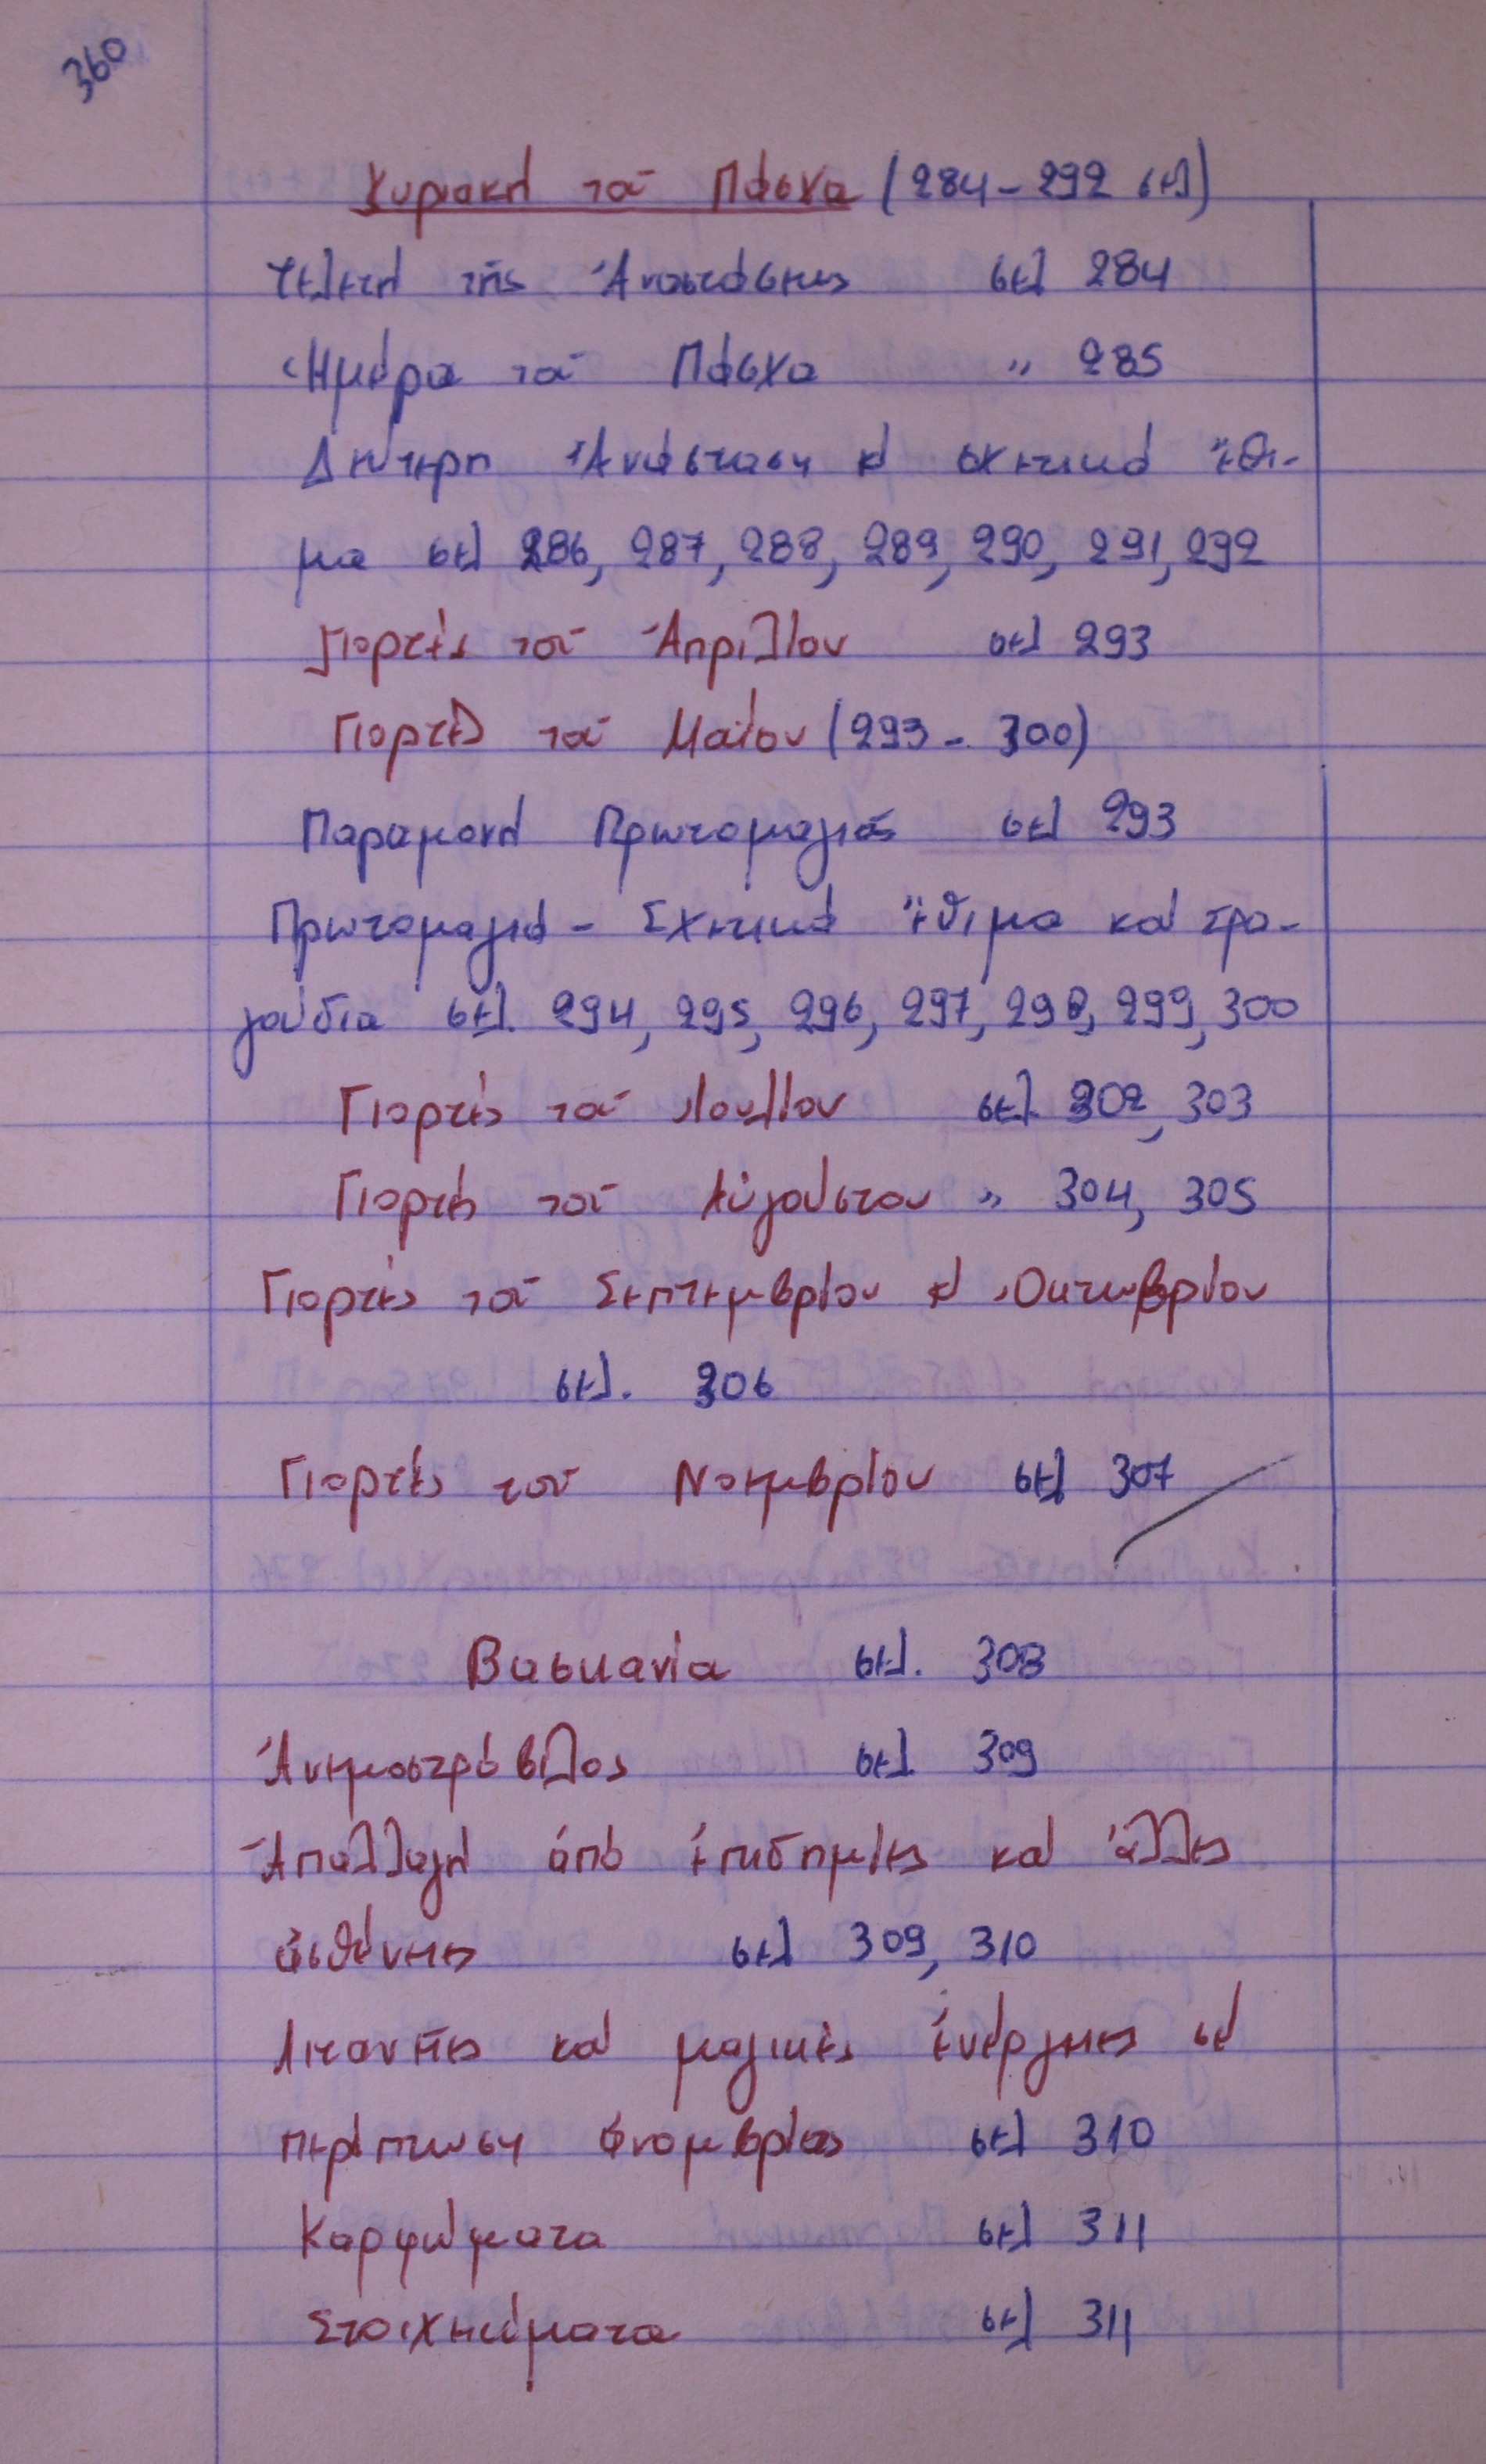 360
Κυριακή τοῦ Πάσχα (284-292 σελ)
Τελετή τῆς Ἀναστάσεως σελ 284
Ἡμέρα τοῦ Πάσχα " 285
Δεύτερη Ἀνάσταση κ' σχετικά ἔθι-
μα σελ 286, 287, 288, 289, 290, 291, 292
Γιορτές τοῦ Ἀπριλίου σελ 293
Γιορτές τοῦ Μαΐου (293 - 300)
Παραμονή Πρωτομαγιᾶς σελ 293
Πρωτομαγιά - Σχετικά ἔθιμα καί τρα-
γούδια σελ. 294, 295, 296, 297, 298, 299, 300
Γιορτές τοῦ Ἰουλίου σελ. 302, 303
Γιορτές τοῦ Αὐγούστου " 304, 305
Γιορτές τοῦ Σεπτεμβρίου κ' Ὀκτωβρίου
σελ. 306
Γιορτές τοῦ Νοεμβρίου σελ 307
Βασκανία σελ. 308
Ἀνεμοστρόβιλος σελ. 309
Ἀπαλλαγή ἀπό ἐπιδημίες καί ἄλλες
ἀσθένειες σελ 309, 310
Λιτανεῖες καί μαγικές ἐνέργειες σέ
περίπτωση ἀνομβρίας σελ 310
Καρφώματα σελ 311
Στοιχειώματα σελ 311